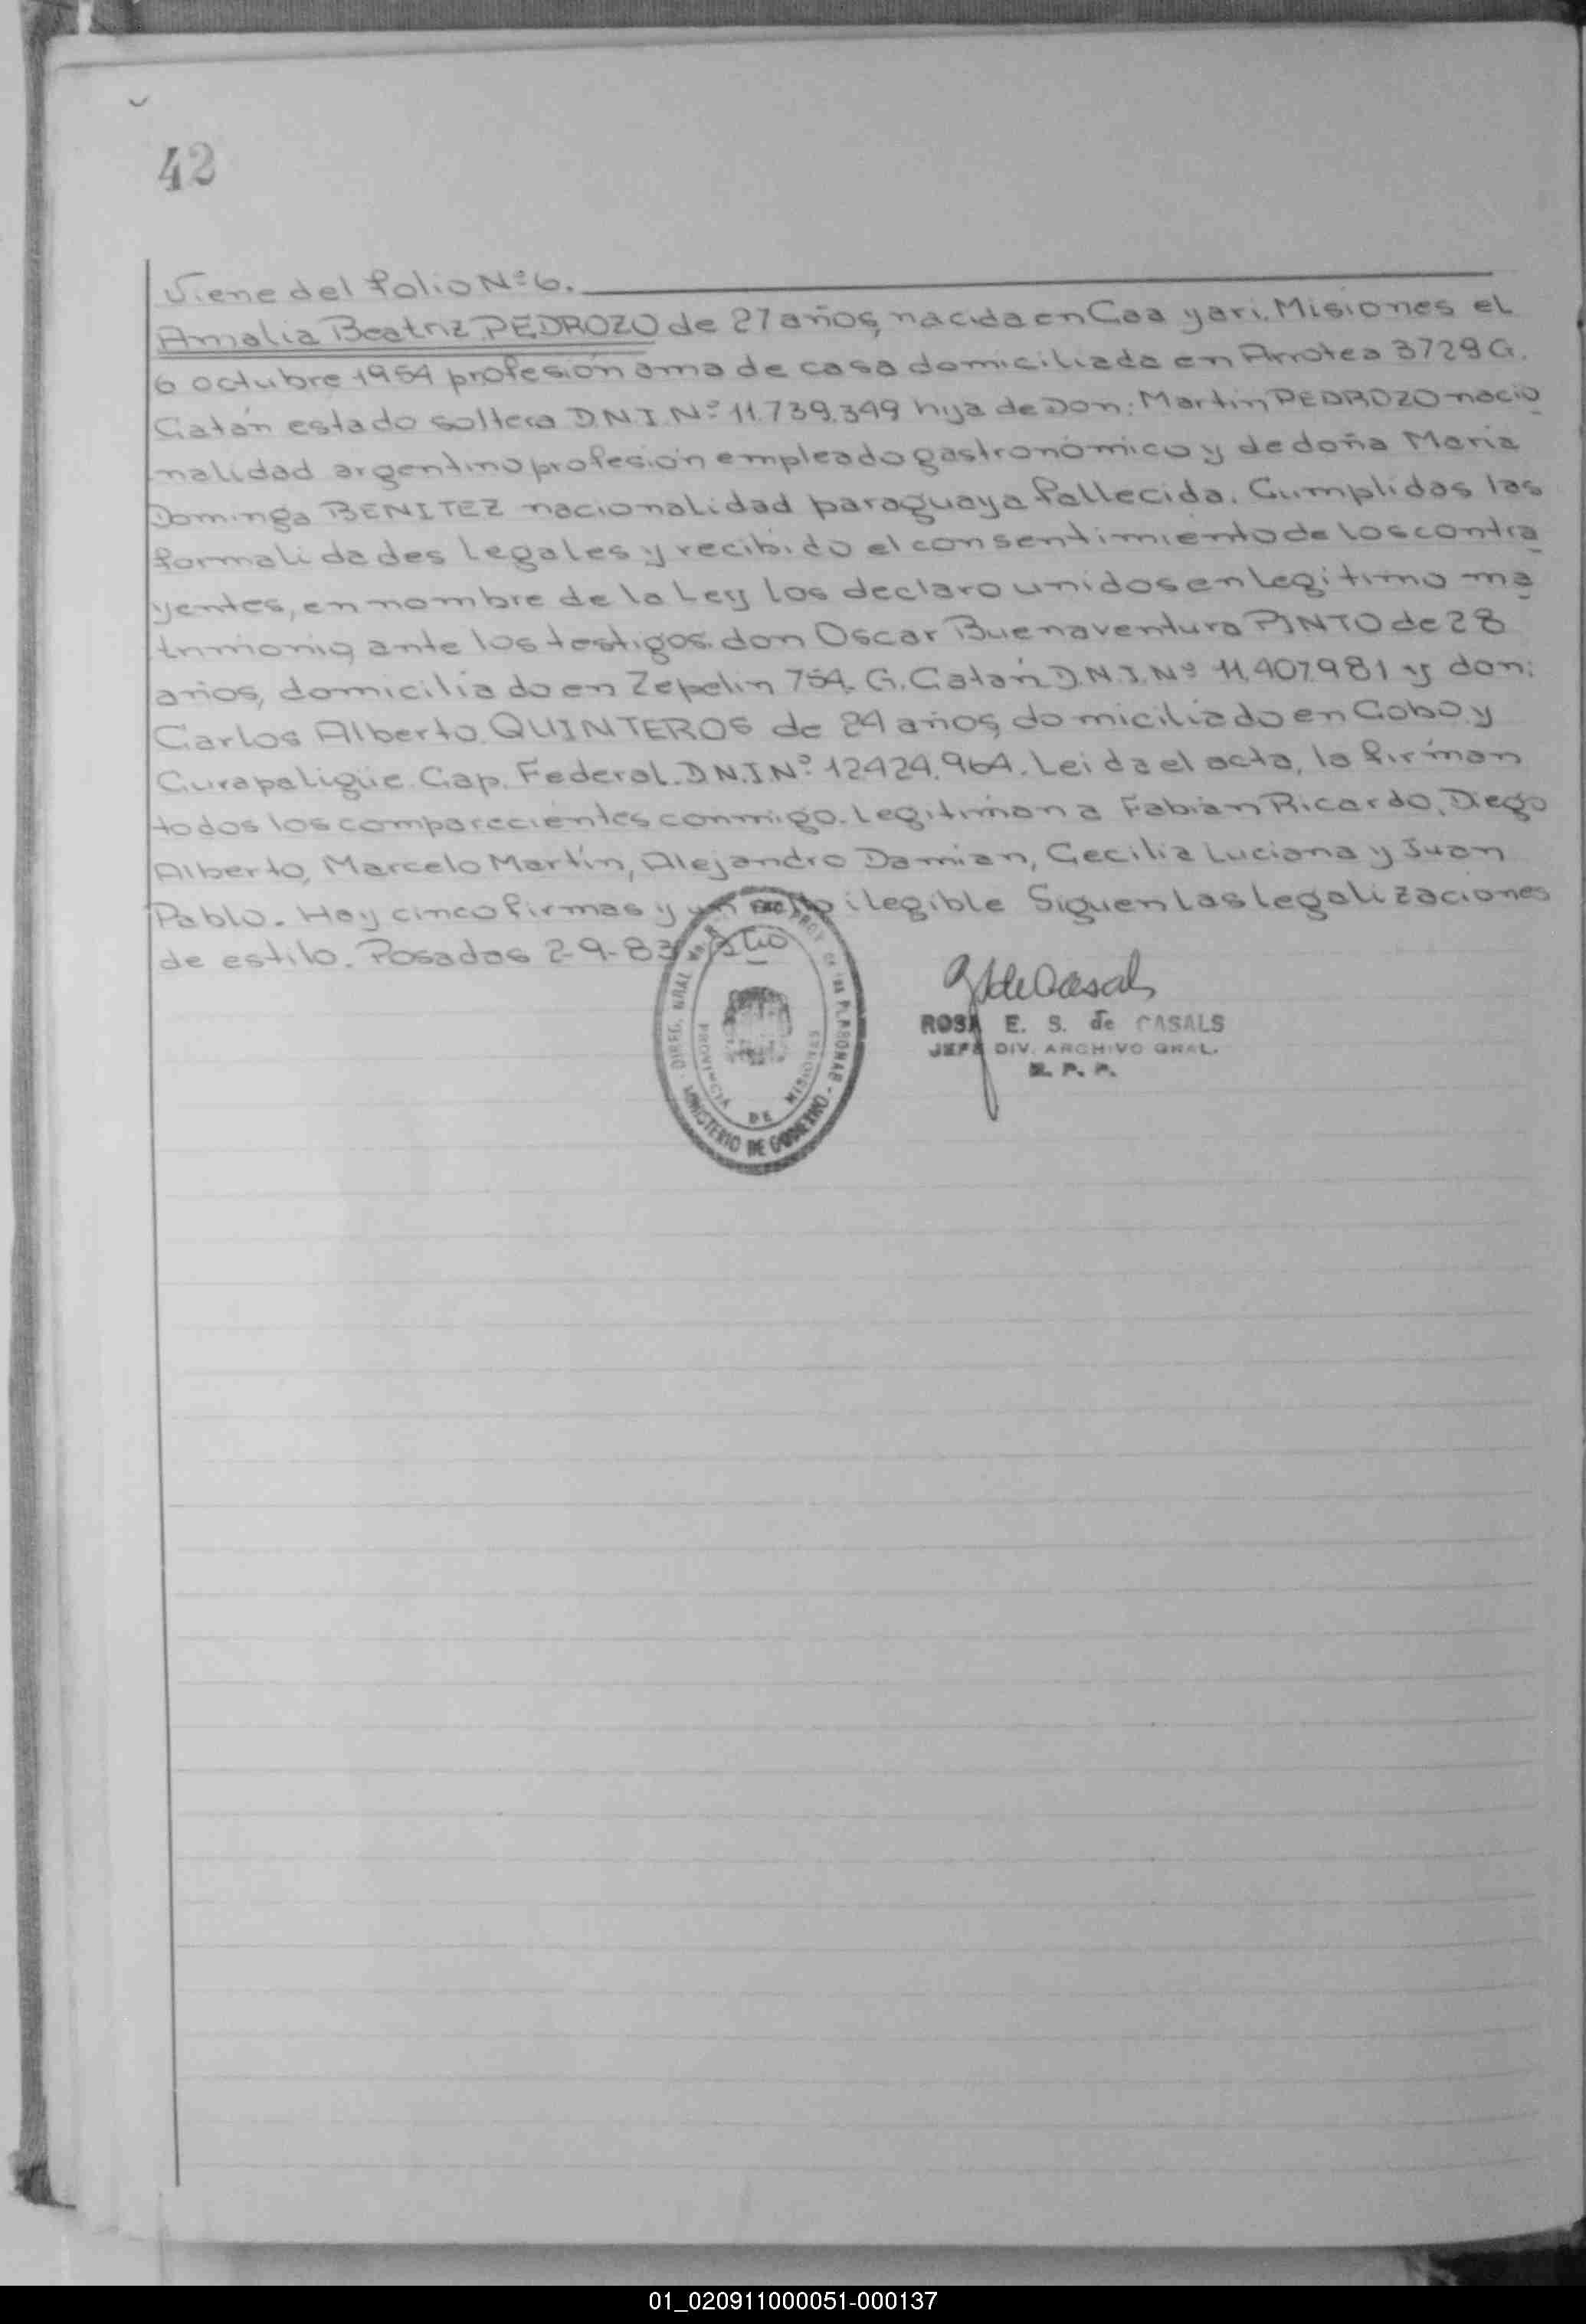 42
Viene del folio Nº 6.
Amalia Beatriz PEDROZO de 27 años, nacida en Caa yari. Misiones el
6 octubre 1954 profesión ama de casa domiciliada en Arrotea 3729 G.
Catán estado soltera D.N.I. Nº 11.739.349 hija de Don: Martín PEDROZO nacio
nalidad argentino profesión empleado gastronómico y de doña María
Dominga BENITEZ nacionalidad paraguaya fallecida. Cumplidas las
formalidades legales y recibido el consentimiento de los contra
yentes, en nombre de la Ley los declaro unidos en legítimo ma
trimonio, ante los testigos don Oscar Buenaventura PINTO de 28
años, domiciliado en Zepelin 754. G. Catán D.N.I. Nº 11.407.981 y don:
Carlos Alberto QUINTEROS de 24 años, domiciliado en Cobo y
Curapaligüe. Cap. Federal. D.N.I. Nº 12.424.964. Leida el acta, la firman
todos los comparecientes conmigo. Legitiman a Fabián Ricardo, Diego
Alberto, Marcelo Martín, Alejandro Damian, Cecilia Luciana y Juan
Pablo. Hay cinco firmas y un sello ilegible Siguen las legalizaciones
de estilo. Posadas 2-9-83
DIREC. GRAL PROV. DE LAS PERSONAS
PROVINCIA DE MISIONES
MINISTERIO DE GOBIERNO
ROSA E. S. de CASALS
JEFE DIV. ARCHIVO GRAL.
R. P. P.
01_020911000051-000137